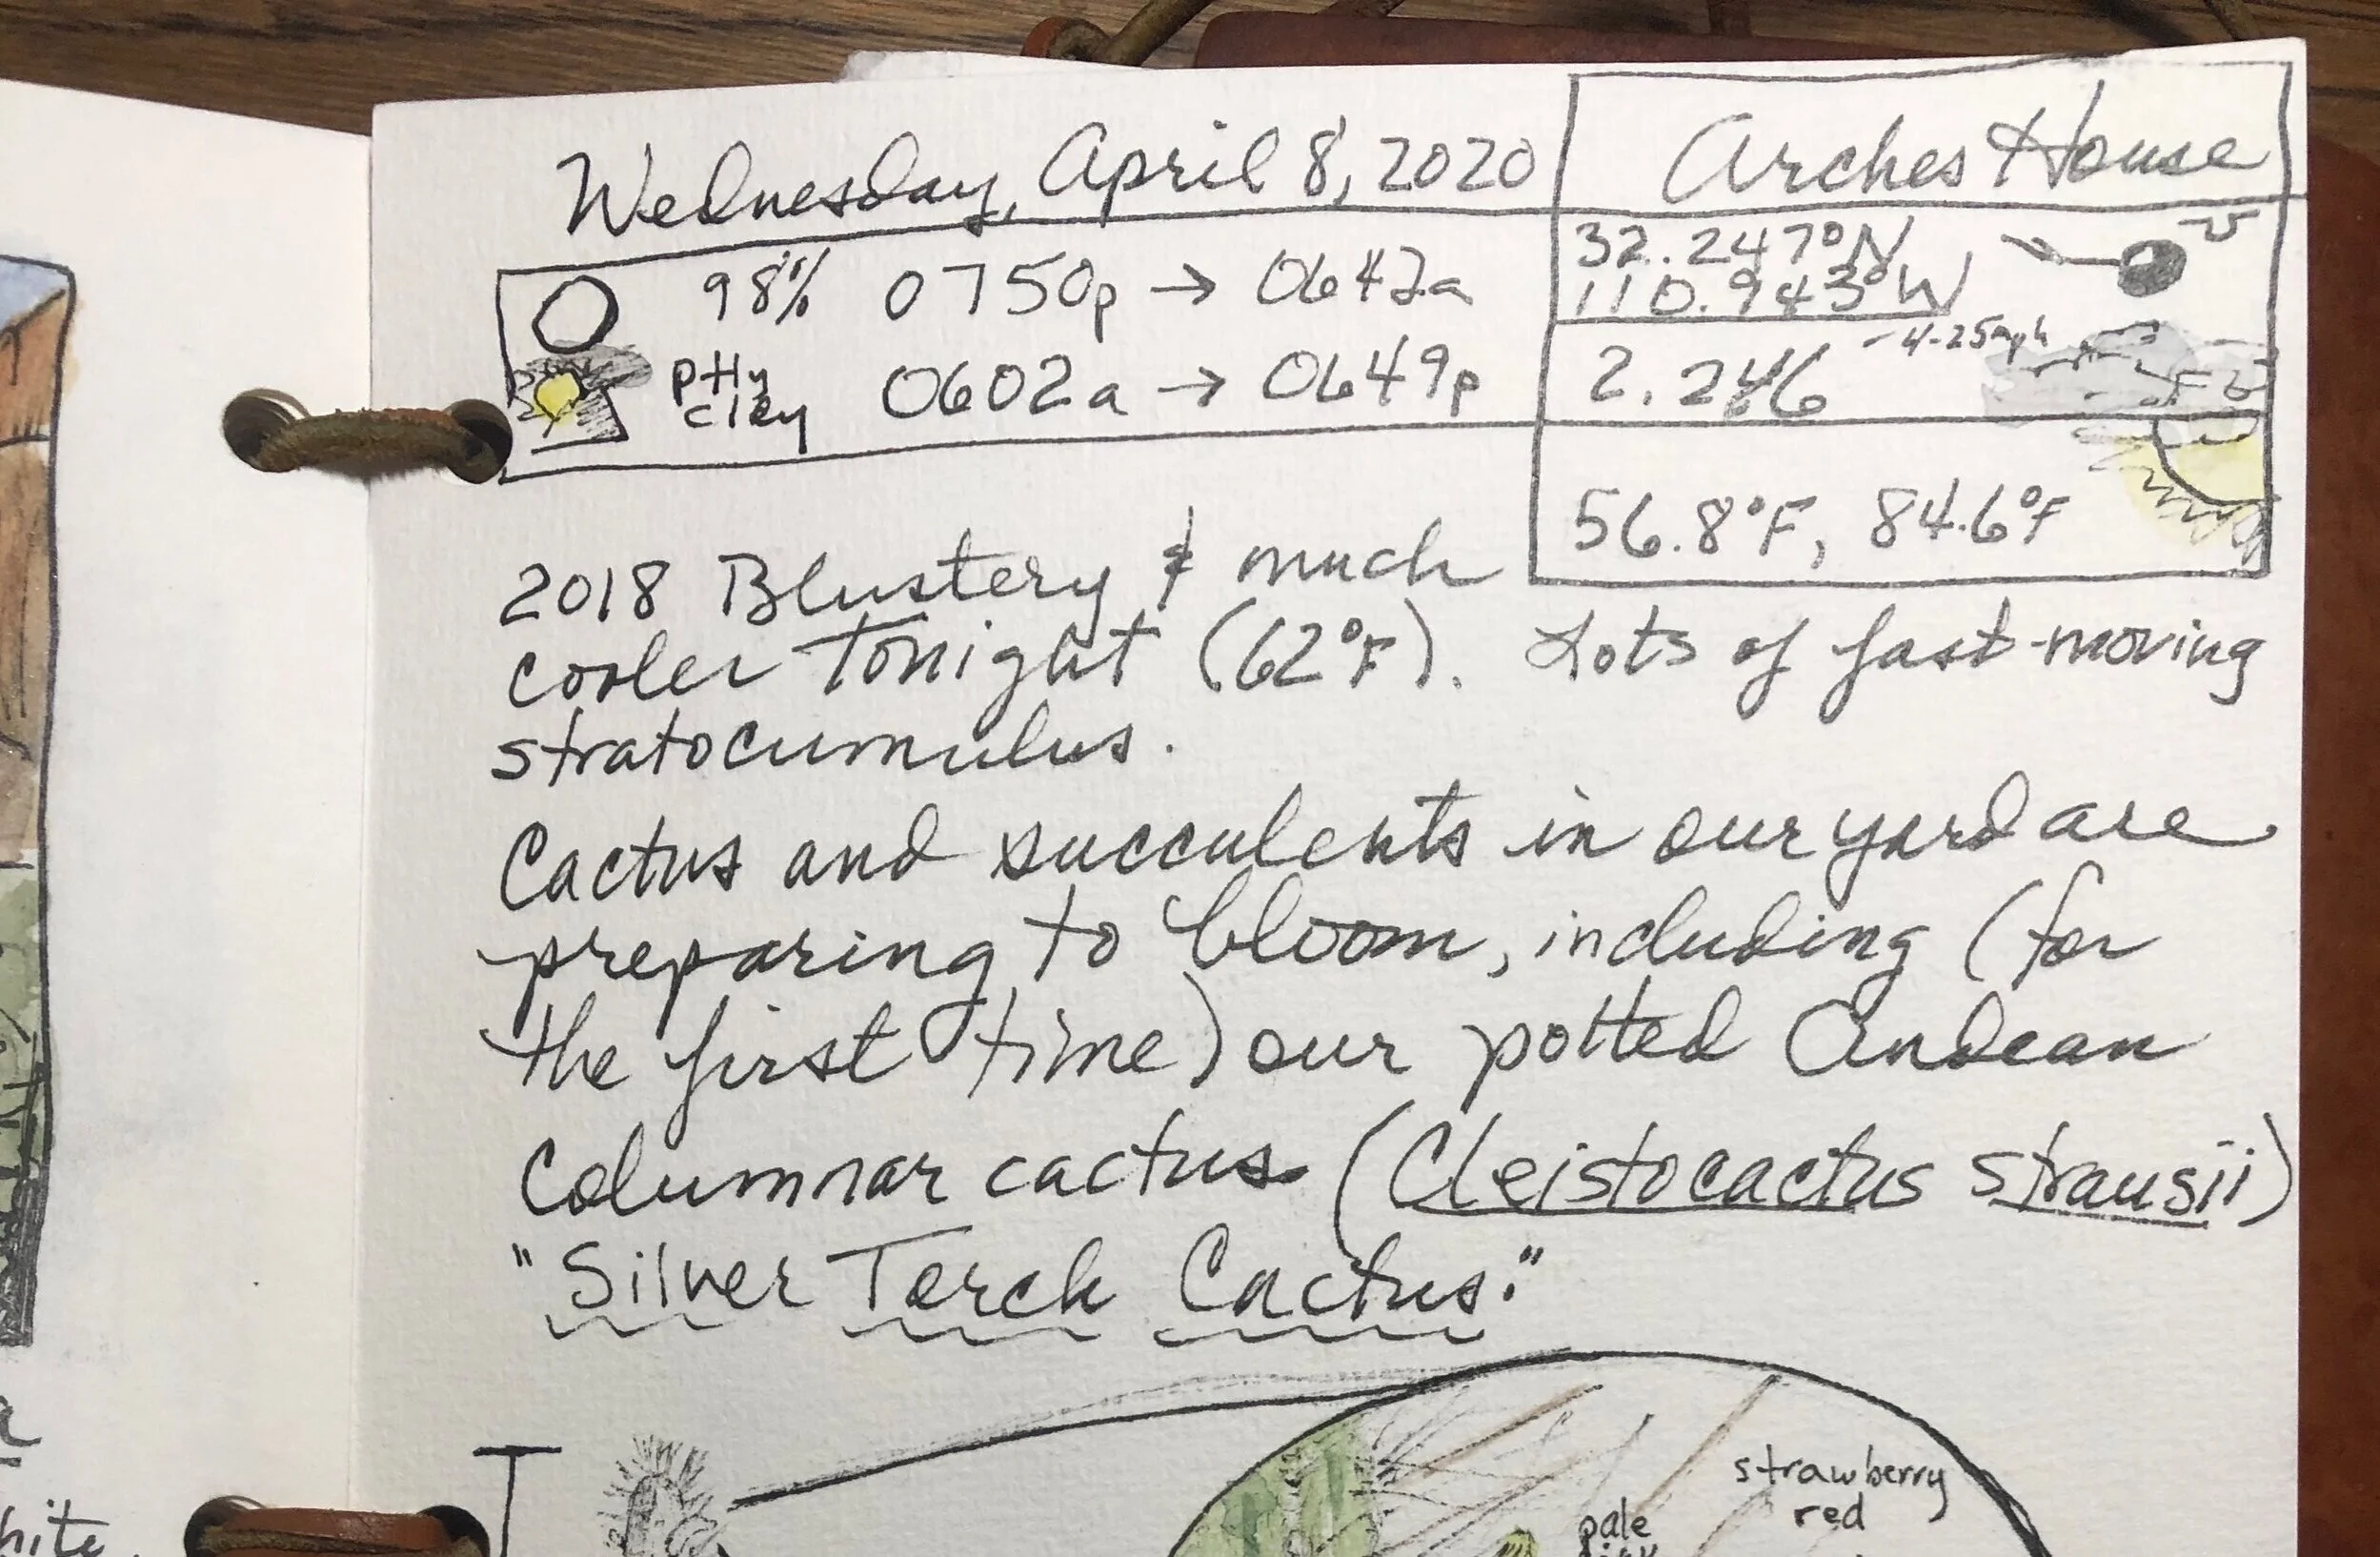 Wednesday, April 8, 2020
Arches House
98% 0750p → 0642a
ptly
cldy
0602a → 0649p
32.247°N
110.943°W
2.246
4-25mph
56.8°F, 84.6°F
2018 Blustery & much
cooler tonight (62°F). Lots of fast-moving
stratocumulus.
Cactus and succulents in our yard are
preparing to bloom, including (for
the first time) our potted Andean
Columnar cactus (Cleistocactus strausii)
"Silver Torch Cactus."
strawberry
red
pale